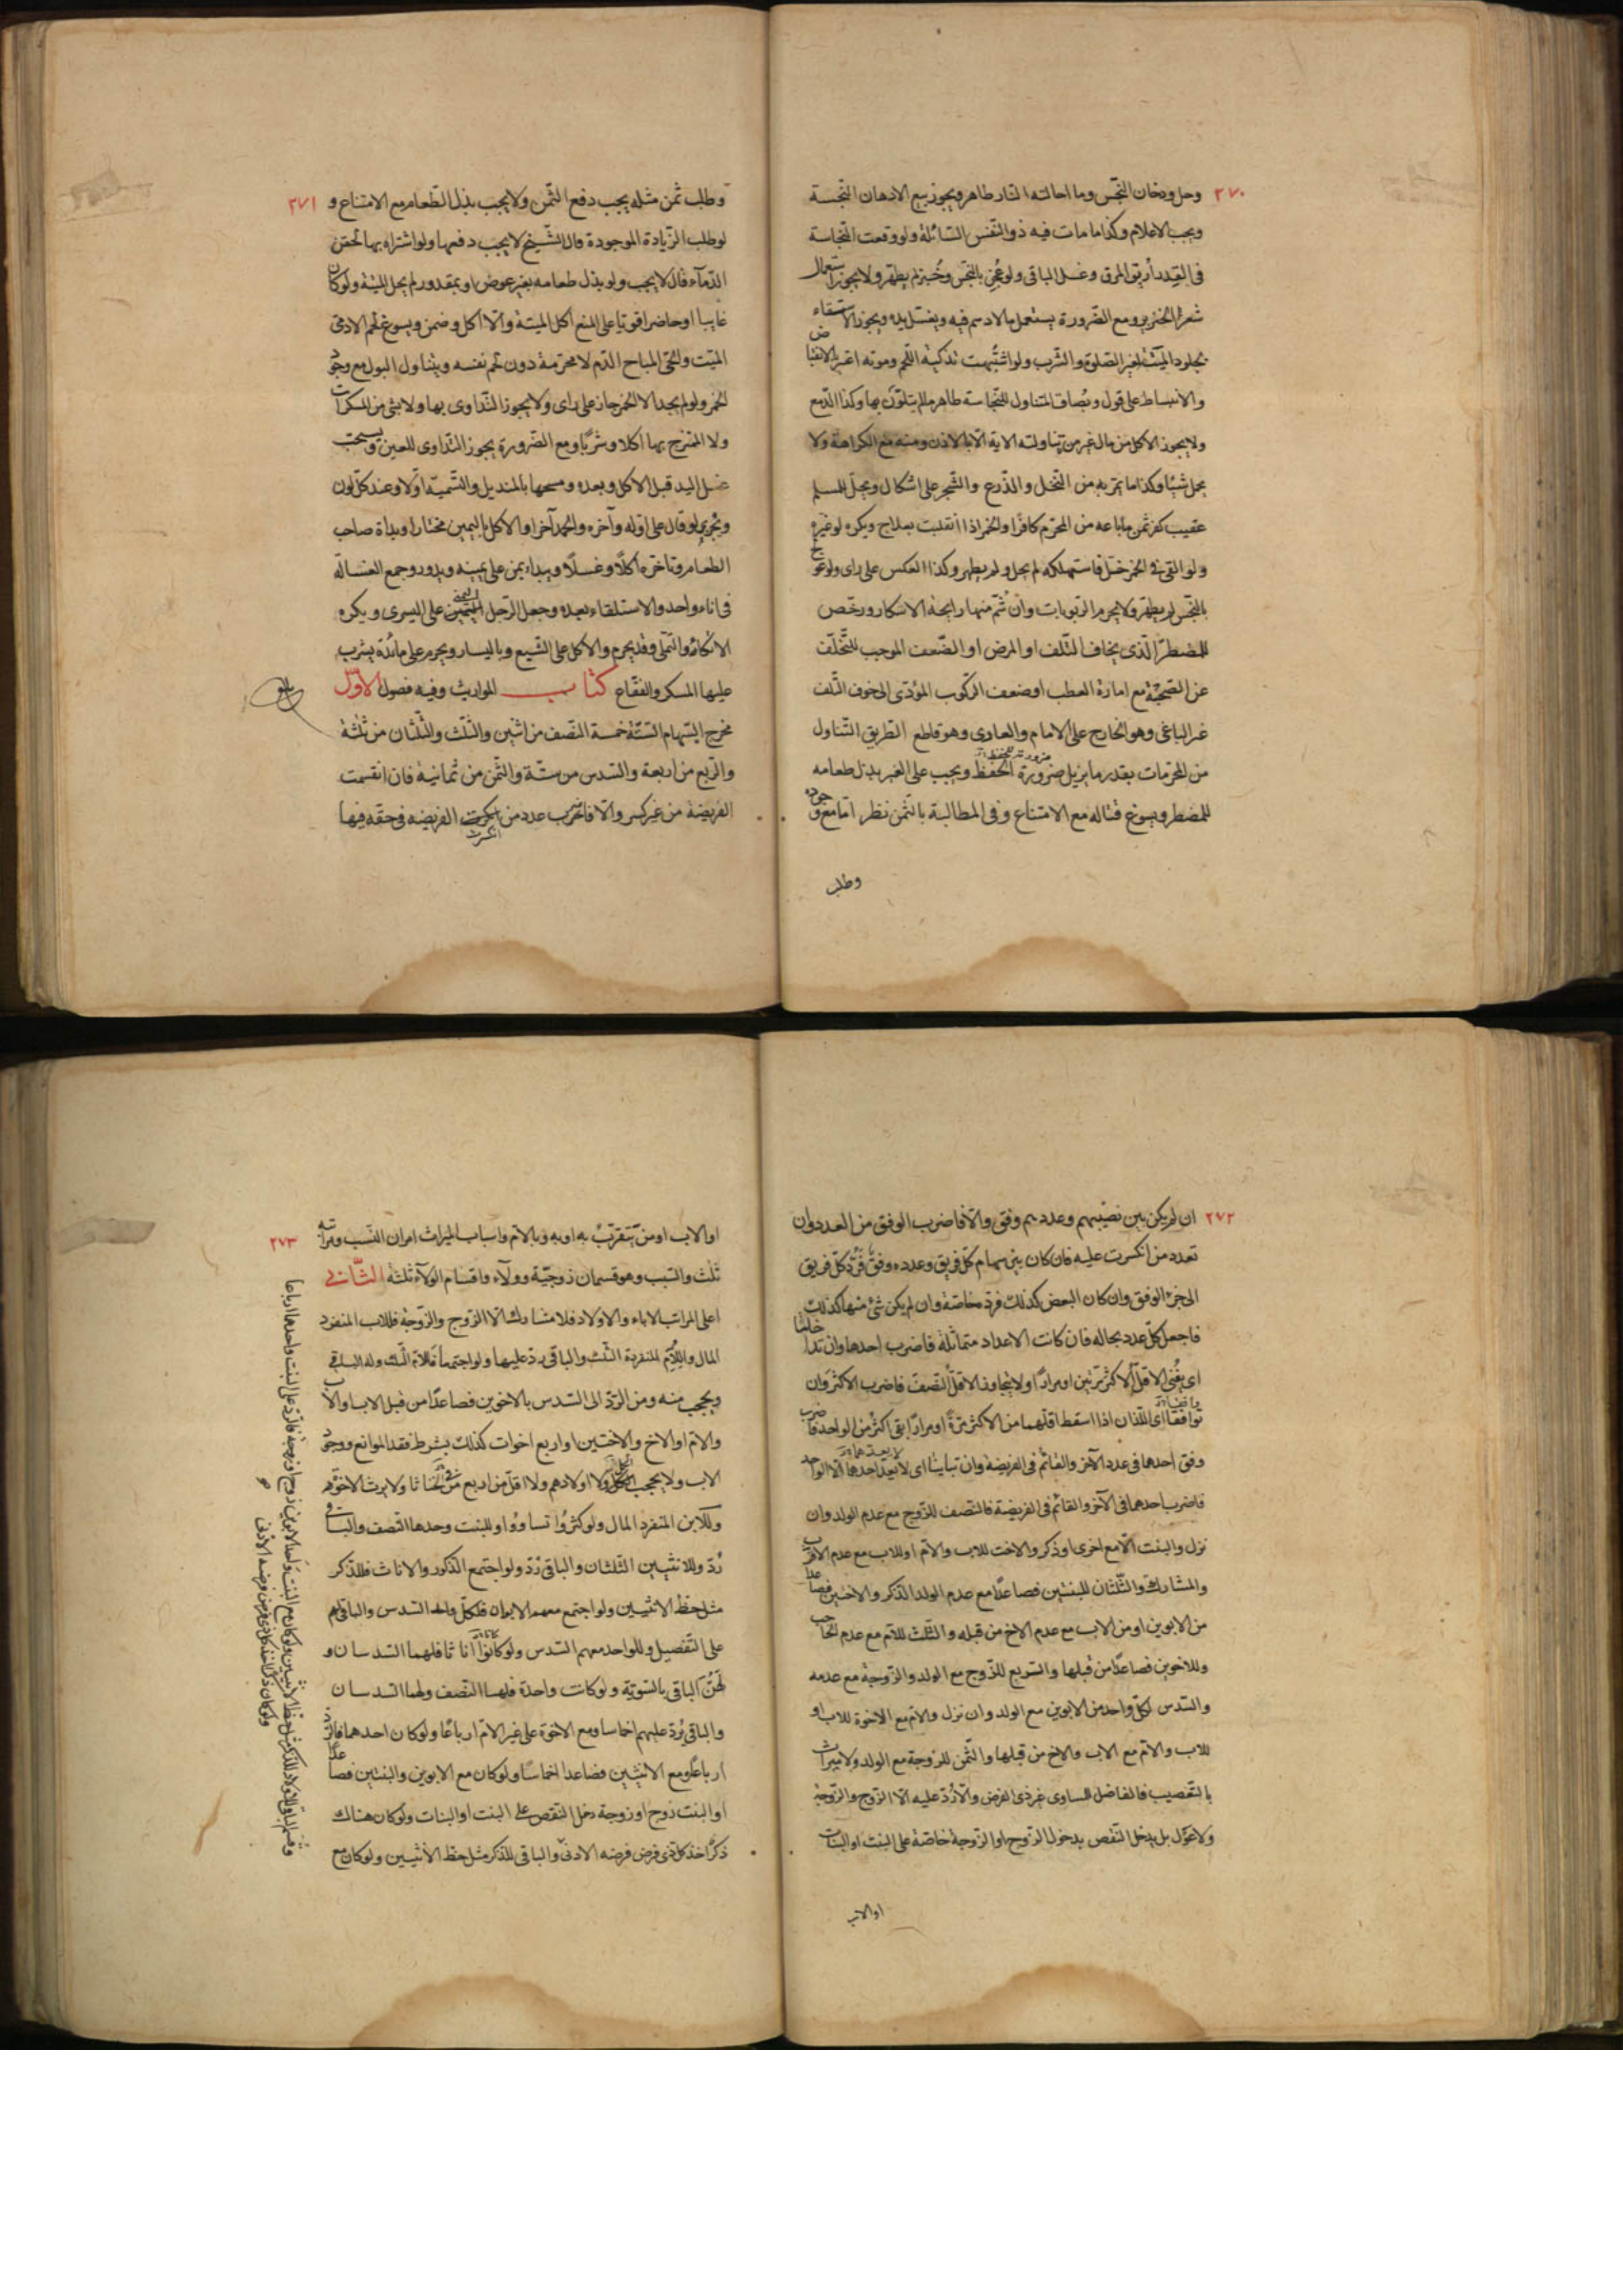 ٢٧٠
وحل ودخان النجس وما احالته النار طاهر ويجوز بيع الادهان النجسة
ويجب الاعلام وكذا ما مات فيه ذو النفس السائلة ولو وقعت النجاسة
فى القدر أريق المرق وغسل الباقى ولو عجن بالنجس وخبز لم يطهر ولا يجوز استعمال
شعر الخنزير ومع الضرورة يستعمل ما لا دسم فيه ويغسل يده ويجوز الاستقاء
بجلود الميتة لغير الصلوة والشرب ولو اشتبهت تذكية اللحم وموته اعتبر بالانقباض
والانبساط على قول وبصاق المتناول للنجاسة طاهر ما لم يتلون بها وكذا الدمع
ولا يجوز الاكل من مال غير من تناولته الاية الا بالاذن ومنه مع الكراهة ولا
يحمل شيئا وكذا ما يمر به من النخل والزرع والشجر على اشكال ويحل للمسلم
عقيب كفر ثمن ما باعه من المحرم كافرا والخمر اذا انقلبت بعلاج ويكره لو غيره
ولو القى فى الخمر خل فاستهلكه لم يحل ولم يطهر وكذا العكس على راى ولو عولج
بالنجس لم يطهر ولا يحرم الربوبات وان شم منها رايحة الاسكار ورخص
للمضطر الذى يخاف التلف او المرض او الضعف الموجب للتخلف
عن الصحبة مع امارة العطب او ضعف الركوب المؤدى الى خوف التلف
غير الباغى وهو الخارج على الامام والعادى وهو قاطع الطريق التناول
من المحرمات بقدر ما يزيل ضرورة الحفظ ويجب على الغير بذل طعامه
للمضطر ويسوغ قتاله مع الامتناع وفى المطالبة بالثمن نظر اما مع وجوده
وطلب
٢٧١
وطلب ثمن مثله يجب دفع الثمن ولا يجب بذل الطعام مع الامتناع و
لو طلب الزيادة الموجودة قال الشيخ لا يجب دفعها ولو اشتراه بها لحقن
الدماء قال لا يجب ولو بذل طعامه بغير عوض او بمقدور لم يحل الميتة ولو كان
غايبا او حاضرا قويا على المنع اكل الميتة والا اكل وضمن ويسوغ لحم الادمى
الميت والحى المباح الدم لا محرمة دون لحم نفسه ويتناول البول مع وجود
الخمر ولو لم يجد الا الخمر جاز على راى ولا يجوز التداوى بها ولا بشئ من المسكرات
ولا الممتزج بها اكلا وشربا ومع الضرورة يجوز التداوى للعين ويستحب
غسل اليد قبل الاكل وبعده ومسحها بالمنديل والتسمية اولا وعند كل لون
ويجزى لو قال على اوله وآخره والحمد آخرا والاكل باليمين مختارا وبداة صاحب
الطعام وتاخره اكلا وغسلا ويبداء بمن على يمينه ويدور وجمع الغسالة
فى اناء واحد والاستلقاء بعده وجعل الرجل اليمين على اليسرى ويكره
الاتكاء والتملى وقد يحرم والاكل على الشبع وباليسار ويحرم على مائدة يشرب
عليها المسكر والفقاع كتاب المواريث وفيه فصول الاول
مخرج السهام الستة خمسة النصف من اثنين والثلث والثلثان من ثلثة
والربع من اربعة والسدس من ستة والثمن من ثمانية فان انقسمت
الفريضة من غير كسر والا فاضرب عدد من انكسرت الفريضه فى حقه فيها
٢٧٢
ان لم يكن بين نصيبهم وعددهم وفق والا فاضرب الوفق من العدد وان
تعدد من انكسرت عليه فان كان بين سهام كل فريق وعدده وفق فرد كل فريق
الى جزء الوفق وان كان البعض كذلك فرده خاصة وان لم يكن شئ منها كذلك
فاجعل كل عدد بحاله فان كانت الاعداد متماثلة فاضرب احدها وان تداخلتا
اى يفنى الاقل الاكثر مرتين او مرارا ولا يتجاوز الاقل النصف فاضرب الاكثر وان
توافقا اى اللذان اذا اسقط اقلهما من الاكثر مرة او مرارا بقى اكثر من الواحد فاضرب
وفق احدها فى عدد الآخر والقائم فى الفريضة وان تباينا اى لا يعد احدها الا الواحد
فاضرب احدهما فى الآخر والقائم فى الفريضة فالنصف للزوج مع عدم الولد وان
نزل والبنت الا مع اخرى او ذكر والاخت للاب والام او للاب مع عدم الاقرب
والمشارك والثلثان للبنتين فصاعدا مع عدم الولد الذكر والاختين فصاعدا
من الابوين او من الاب مع عدم الاخ من قبله والثلث للام مع عدم الحاجب
وللاخوين فصاعدا من قبلها والربع للزوج مع الولد والزوجة مع عدمه
والسدس لكل واحد من الابوين مع الولد وان نزل والام مع الاخوة للاب او
للاب والام مع الاب والاخ من قبلها والثمن للزوجة مع الولد ولا ميراث
بالتعصيب فالفاضل للمساوى غير ذى الفرض والا رد عليه الا الزوج والزوجة
ولا عول بل يدخل النقص بدخول الزوج او الزوجة خاصة على البنت او البنات
او الاب
٢٧٣
او الاب او من يتقرب به او به وبالام واسباب الميراث امران النسب ومراتبه
ثلث والسبب وهو قسمان زوجية وولاء واقسام الولاء ثلثة الثانى
اعلى المراتب الاباء والاولاد فلا مشارك الا الزوج والزوجة فللاب المنفرد
المال وللام المنفردة الثلث والباقى رد عليها ولو اجتمعا فللام الثلث وله الباقى
ويحجب منه ومن الرد الى السدس بالاخوين فصاعدا من قبل الاب او الاب
والام او الاخ والاختين او اربع اخوات كذلك بشرط فقد الموانع ووجود
الاب ولا يحجب ولا اولادهم ولا اقل من اربع ولا يرث الاخوة
وللابن المنفرد المال ولو كثروا تساووا وللبنت وحدها النصف والباقى
رد وللانثيين الثلثان والباقى رد ولو اجتمع الذكور والاناث فللذكر
مثل حظ الانثيين ولو اجتمع معهم الابوان فلكل واحد السدس والباقى لهم
على التفصيل وللواحد معهم السدس ولو كانوا اناثا فلهما السدسان و
لهن الباقى بالسوية ولو كانت واحدة فلها النصف ولهما السدسان
والباقى يرد عليهم اخماسا ومع الاخوة على غير الام ارباعا ولو كان احدهما فالرد
ارباعا ومع الانثيين فصاعدا اخماسا ولو كان مع الابوين والبنتين فصاعدا
او البنت زوج او زوجة دخل النقص على البنت او البنات ولو كان هناك
ذكر اخذ كل ذى فرض فرضه الادنى والباقى للذكر مثل حظ الانثيين ولو كان مع